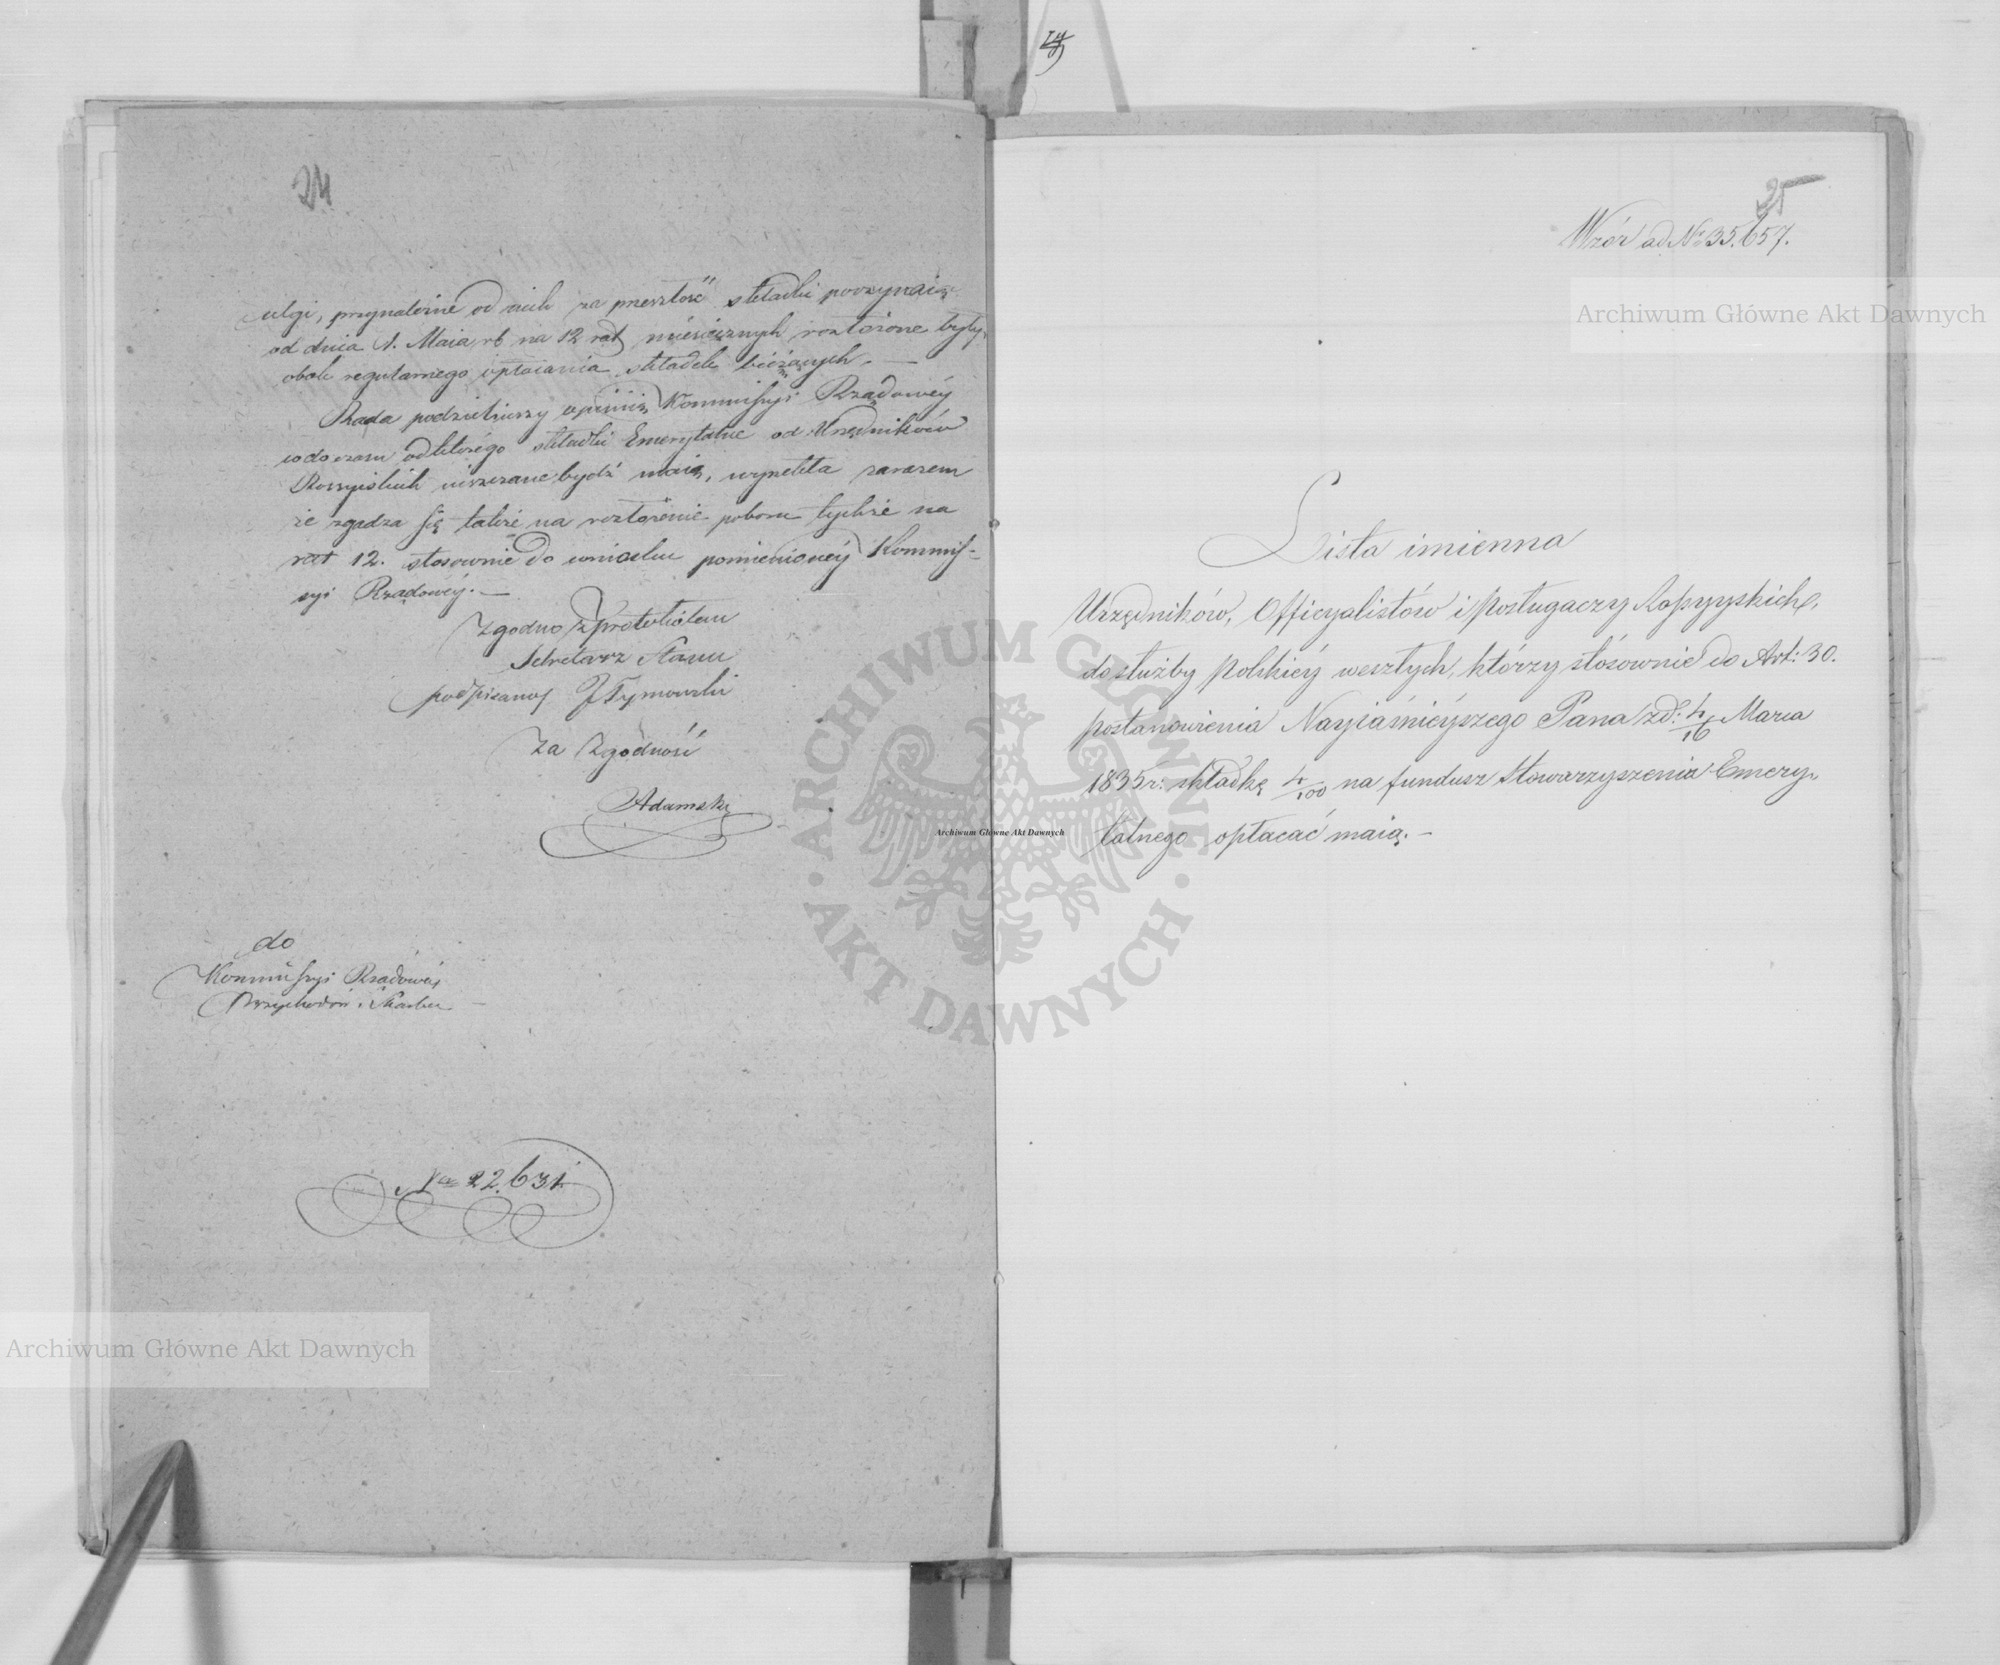 24
ulgi, przynależne od nich za przeszłość składki poczynając
od dnia 1. Maia rb na 12 rat miesięcznych rozłożone były,
obok regularnego opłacania składek bieżących. —
Rada podzieliwszy opiniią Kommissyi Rządowéy
co do czasu od którégo składki Emerytalne od Urzędników
Rossyiskich uiszczane bydź maią, wyrzekła zarazem
że zgadza się także na rozłożenie poboru tychże na
rat 12. stosownie do wniosku pomienionéy Kommis-
syi Rządowéy. —
Zgodno z protokółem
Sekretarz Stanu
podpisano J Tymowski
Za Zgodność
Adamski
do
Kommissyi Rządowéy
Przychodów i Skarbu —
No 22.631.
25
Wzór ad No 35.657.
Lista imienna
Urzędników, Officyalistów i posługaczy Rossyyskich,
do służby Polskiéy weszłych, którzy stósownie do Art: 30.
postanowienia Nayiaśnieyszego Pana z d: 4/16 Marca
1835 r: składkę 4/100 na fundusz Stowarzyszenia Emery-
talnego opłacać maią. —
Archiwum Główne Akt Dawnych
Archiwum Główne Akt Dawnych
Archiwum Główne Akt Dawnych
ARCHIWUM GŁÓWNE
AKT DAWNYCH